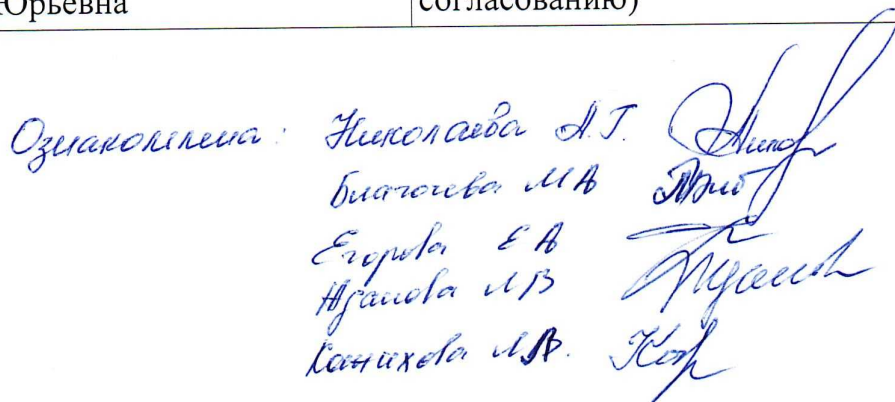 Юрьевна согласованию)
Ознакомлена: Николаева А.Г.
Благочева МА
Егорова ЕА
Жданова ЛВ
Канихова